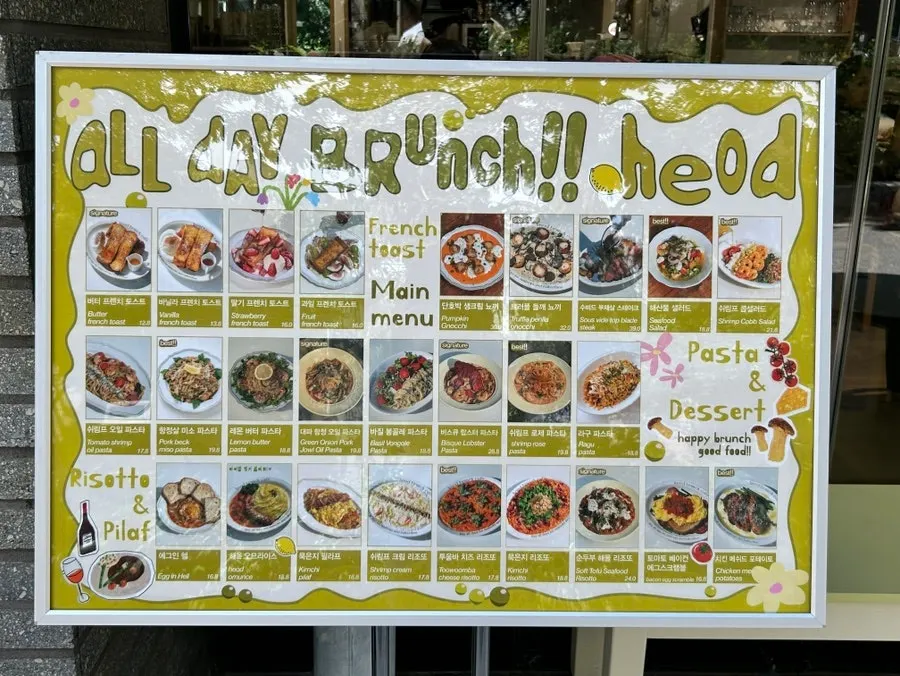 ALL DAY BRUNCH!! heod
French
toast
Main
menu
signature
버터 프렌치 토스트
Butter
french toast
바닐라 프렌치 토스트
Vanilla
french toast 13.8
딸기 프렌치 토스트
Strawberry
french toast 16.0
과일 프렌치 토스트
Fruit
french toast 16.0
단호박 생크림 뇨끼
Pumpkin
Gnocchi
트러플 들깨 뇨끼
Truffle perilla
gnocchi 32.0
signature
수비드 부채살 스테이크
Sous vide top blade
steak 39.0
best!!
해산물 샐러드
Seafood
Salad
best!!
쉬림프 콥샐러드
Shrimp Cobb Salad
21.8
Pasta
&
Dessert
happy brunch
good food!!
쉬림프 오일 파스타
Tomato shrimp
oil pasta 17.8
best!!
항정살 미소 파스타
Pork beck
miso pasta 19.8
레몬 버터 파스타
Lemon butter
pasta
signature
대파 항정 오일 파스타
Green Onion Pork
Jowl Oil Pasta
바질 봉골레 파스타
Basil Vongole
Pasta
signature
비스큐 랍스터 파스타
Bisque Lobster
Pasta
best!!
쉬림프 로제 파스타
shrimp rose
pasta
라구 파스타
Ragu
pasta
Risotto
&
Pilaf
에그인 헬
Egg in Hell 16.8
헤옫 오므라이스
heod
omurice
묵은지 필라프
Kimchi
pilaf 16.8
쉬림프 크림 리조또
Shrimp cream
risotto 17.8
best!!
투움바 치즈 리조또
Toowoomba
cheese risotto 17.8
묵은지 리조또
Kimchi
risotto
signature
순두부 해물 리조또
Soft Tofu Seafood
Risotto 24.0
토마토 베이컨
에그스크램블
bacon egg scramble 16.8
best!!
치킨 메쉬드 포테이토
Chicken
potatoes